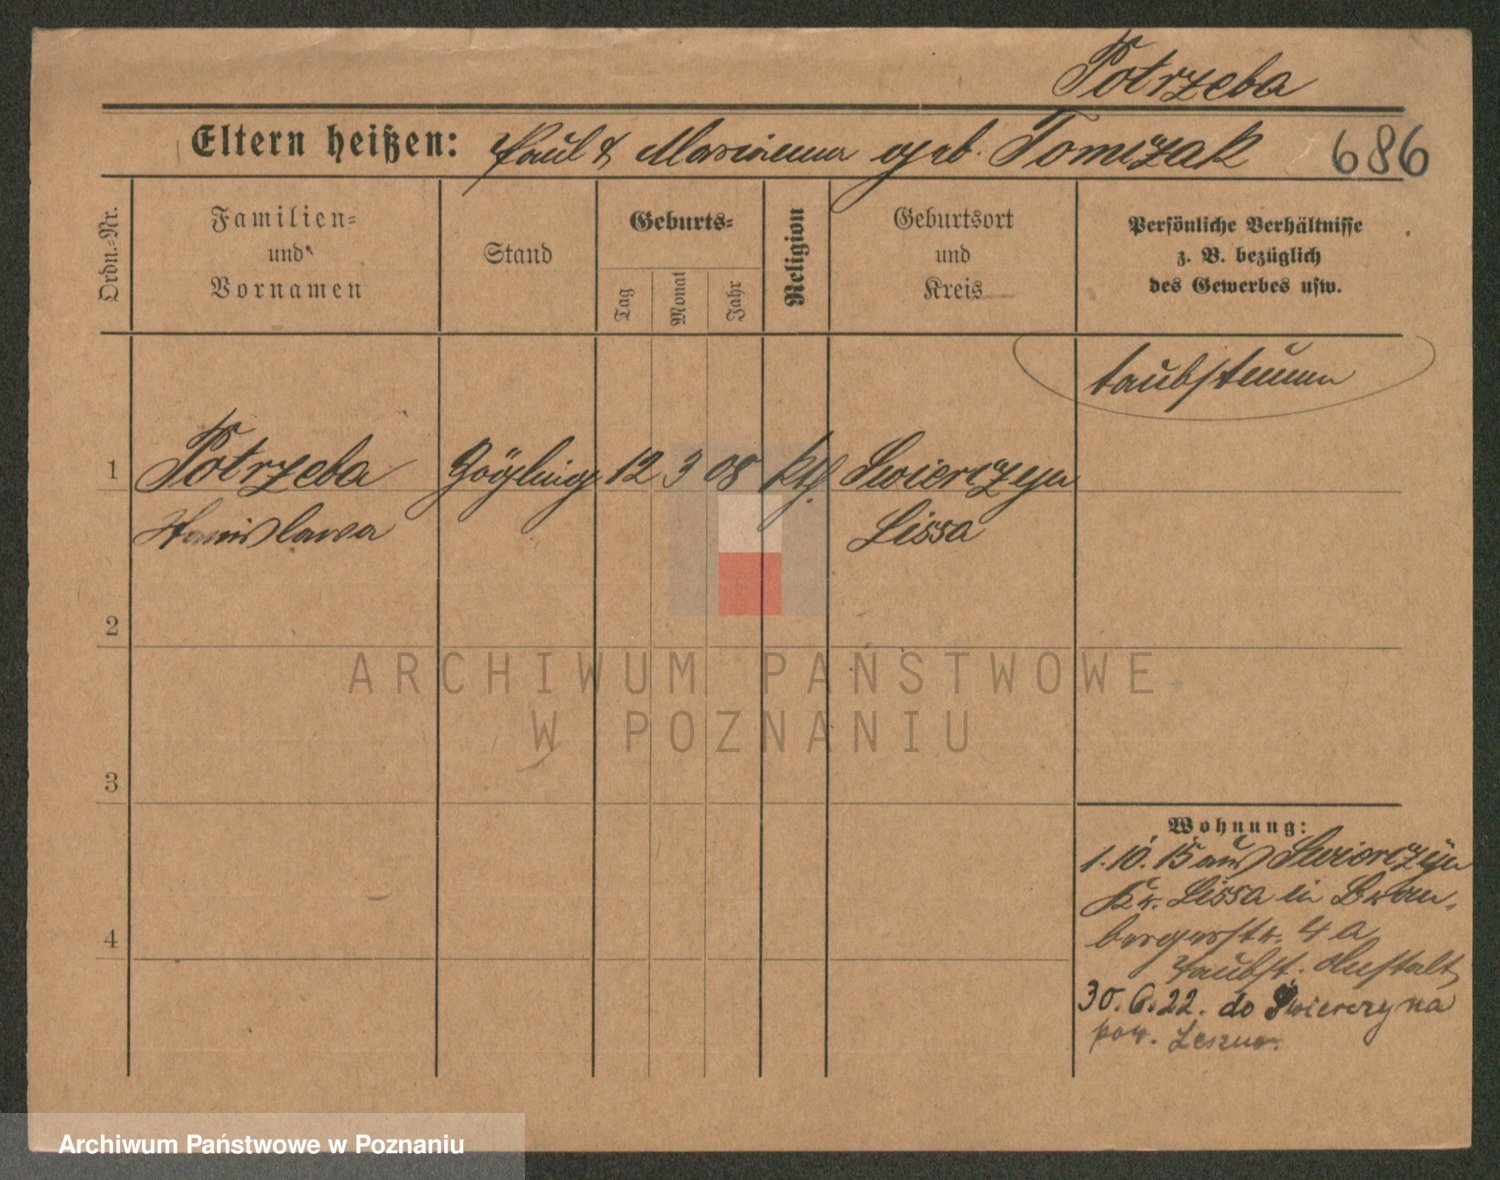 Potrzeba
Eltern heißen: Paul & Marianna geb. Tomczak 686
Ordn.-Nr.
Familien-
und
Vornamen
Stand
Geburts-
Tag
Monat
Jahr
Religion
Geburtsort
und
Kreis
Persönliche Verhältnisse
z. B. bezüglich
des Gewerbes usw.
taubstumm
1 Potrzeba Zögling 12 3 08 kth. Swierczyn
Stanislawa Lissa
2
3
4
Wohnung:
1.10.15 aus Swierczyn
Kr. Lissa in Brom-
bergerstr. 4a
Taubst. Anstalt
30.6.22. do Swierczyna
pow. Leszno.
ARCHIWUM PAŃSTWOWE
W POZNANIU
Archiwum Państwowe w Poznaniu